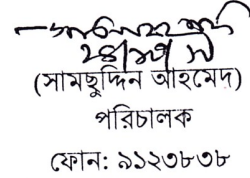 (সামছুদ্দিন আহমেদ)
পরিচালক
ফোন: ৯১২৩৮৩৮